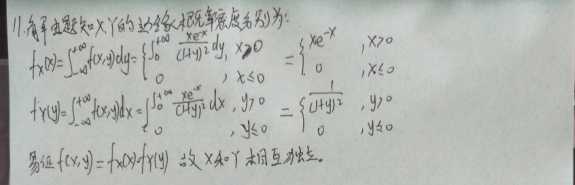 11.解:由题知X,Y的边缘概率密度分别为:
fX(x)=∫_{-∞}^{+∞}f(x,y)dy={∫_0^{+∞} xe^{-x}/(1+y)^2 dy, x>0; 0, x≤0 ={xe^{-x}, x>0; 0, x≤0
fY(y)=∫_{-∞}^{+∞}f(x,y)dx={∫_0^{+∞} xe^{-x}/(1+y)^2 dx, y>0; 0, y≤0 ={1/(1+y)^2, y>0; 0, y≤0
易证f(x,y)=fX(x)·fY(y) 故X和Y相互独立。